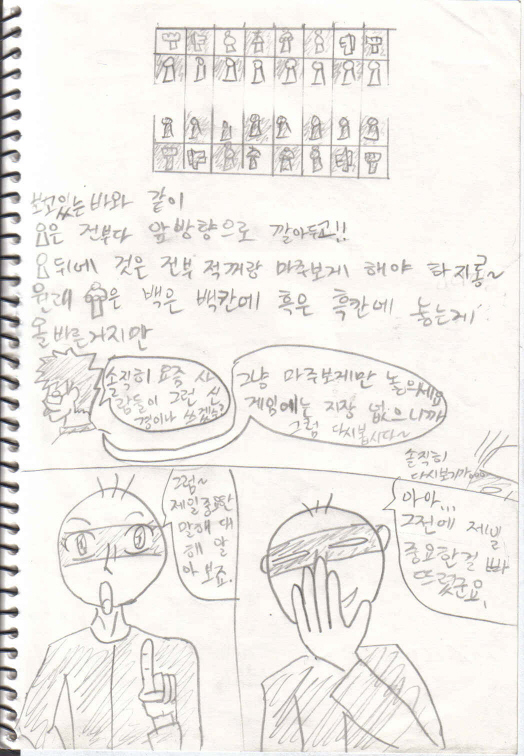 보고있는바와 같이
은 전부다 앞방향으로 깔아두고!!
뒤에 것은 전부 적꺼랑 마주보게 해야 하지롱~
원래 은 백은 백칸에 흑은 흑칸에 놓는게
올바른거지만
솔직히 요즘 사
람들이 그런 신
경이나 쓰겠소?
그냥 마주보게만 놓으세요
게임에는 지장 없으니까
그럼 다시봅시다~
솔직히
그럼~
제일중요한
말에 대
해 알
아 보죠.
아아...
그전에 제일
중요한걸 빠
뜨렸군요.